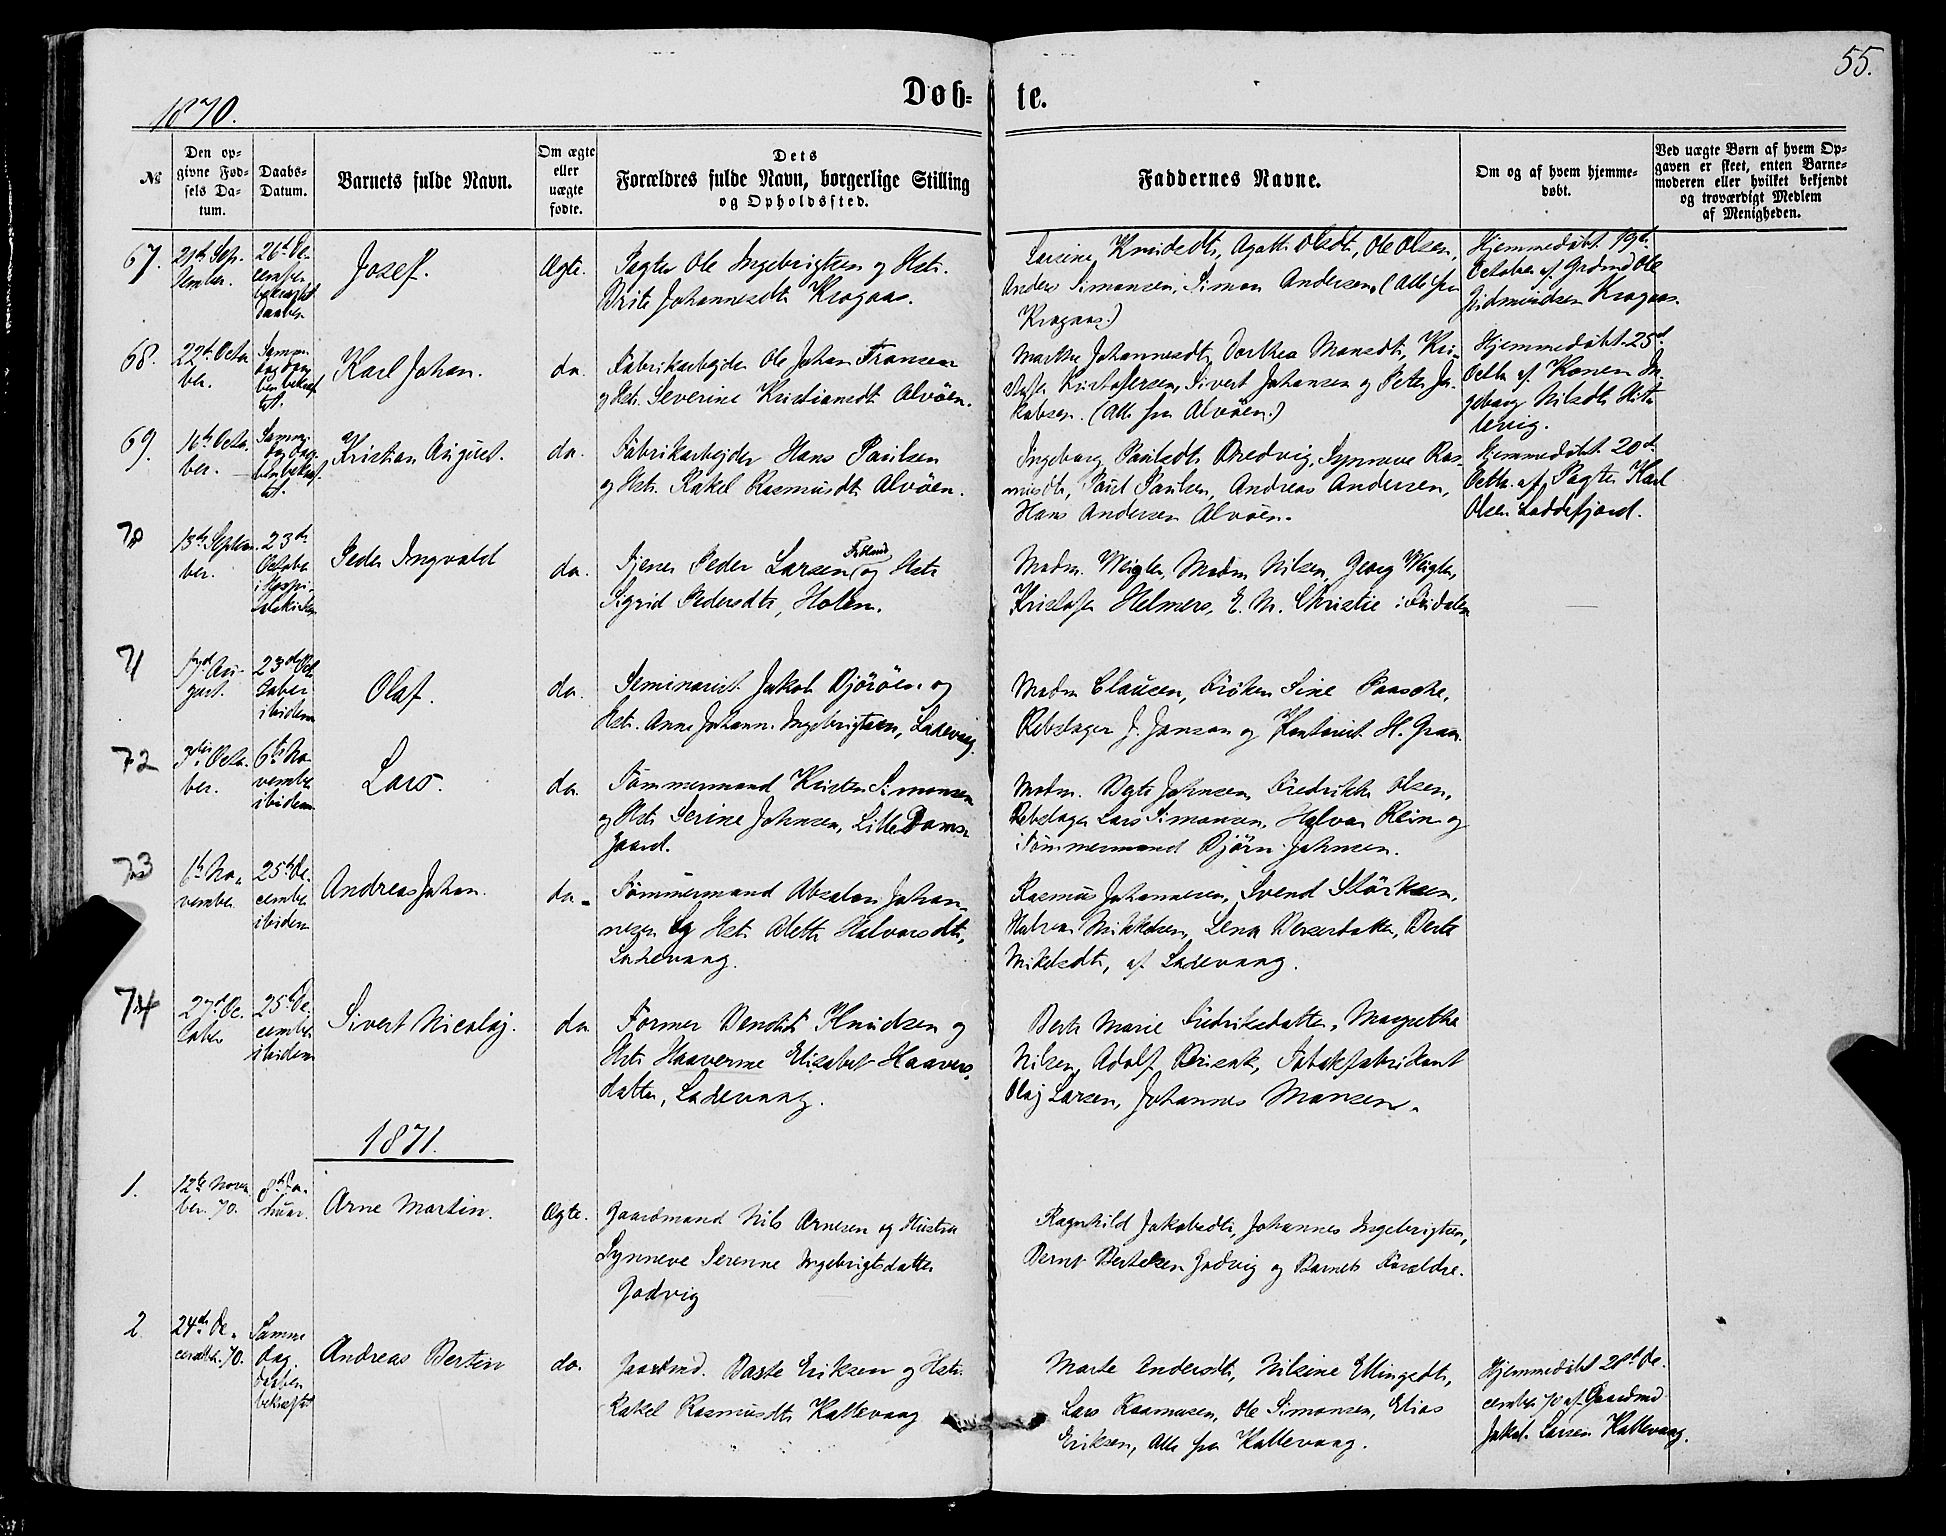 55.
1870.
Døb- te.
№
Den op-
givne Fød-
sels Da-
tum.
Daabs-
Datum.
Barnets fulde Navn.
Om ægte
eller
uægte
fødte.
Dets
Forældres fulde Navn, borgerlige Stilling
og Opholdssted.
Faddernes Navne.
Om og af hvem hjemme-
døbt.
Ved uægte Børn af hvem Op-
gaven er skeet, enten Barne-
moderen eller hvilket bekjendt
og troværdigt Medlem
af Menigheden.
67.
21de Sep-
tember.
26d De-
cember
bekræftet
Daaben
Josef.
Ægte.
Pagter Ole Ingebrigtsen og Hstr.
Brite Johannesdtr Kragaas.
Larsine Knudsdtr, Agatte Olsdtr, Ole Olsen,
Anders Simonsen, Simon Andersen. (Alle fra
Kragaas.)
Hjemmedøbt 19de
October af Grdmd Ole
Kragaas.
68.
22de Octo-
ber.
Samme
Dag Daa-
ben bekræf-
tet.
Karl Johan.
do.
Fabrikarbejder Ole Johan Fransen
og Hstr. Severine Kristiansdtr Alvøen.
Marthe Johannesdtr, Dorthea Monsdtr, Kri-
stofer Kristofersen, Sivert Johansen og Peter Ja-
kobsen. (Alle fra Alvøen.)
Hjemmedøbt 25d
Octbr. af Konen In-
geborg Nilsdtr
69.
16de Octo-
ber.
Samme
Dag Daa-
ben bekræf-
tet.
Kristian August.
do.
Fabrikarbejder Hans Paulsen
og Hstr. Rakel Rasmusdtr Alvøen.
Ingeborg Paulsdtr Bredvig, Synneve Ras-
musdtr, Paul Paulsen, Andreas Andersen,
Hans Andersen Alvøen.
Hjemmedøbt 20de
Octbr. af Pagter Karl
Olsen Loddefjord.
70
13de Septem-
ber.
23de
October
i Hospi-
talskirken
Peder Ingvald
do.
Tjener Peder Larsen og Hstr
Sigrid Pedersdtr, Holen.
Madm. Weigler, Madm Nilsen, Georg Weigler,
Kristofer Helmers, E. M. Christie
71
17d Au-
gust.
23de Oc-
tober
ibidem
Olaf.
do.
Seminarist Jakob Djørøen og
Hstr. Anne Johann. Ingebrigtsen, Ladevaag.
Madm Clausen, Frøken Sine Paasche,
Rebslager J. Janson og Kontorist H. Gran.
72
3die Octo-
ber.
6te No-
vember
ibidem
Lars.
do.
Tømmermand Kristen Simonsen
og Hstr Serine Johnsen, Lille Dams-
gaard.
Madm. Berte Johnsen, Fredrikke Olsen,
Rebslager Lars Simonsen, Halvor Rein og
Tømmermand Bjørn Johnsen.
73
6te No-
vember
25de De-
cember
ibidem
Andreas Johan.
do.
Tømmermand Absalon Johan-
nesen og Hstr. Alette Halvorsdtr,
Ladevaag.
Rasmus Johannesen, Svend Størksen,
Halvor Mikkelsen, Lena Berserdatter, Berte
Mikelsdtr, af Ladevaag.
74
27d Oc-
tober
25de De-
cember
ibidem
Sivert Nicolaj.
do
Former Bendikt Knudsen og
Hstr Haaverine Elisabet Haavers-
datter, Ladevaag.
Berte Marie Fredriksdatter, Margrethe
Nilsen, Adolf Brisak, Tobakfabrikant
Olaj Larsen, Johannes Monsen.
1871.
1.
12te Novem-
ber. 70.
8de Ja-
nuar.
Arne Martin.
Ægte.
Gaardmand Nils Arnesen og Hustru
Synneve Serenne Ingebrigtsdatter
Godvig
Ragnhild Jakobsdtr, Johannes Ingebrigtsen,
Bernt Bertelsen Godvig og Barnets Forældre.
2.
24de De-
cember. 70.
Samme
Dag.
Daaben
bekræftet
Andreas Bertin
do.
Gaardmd. Baste Eriksen og Hstr.
Rakel Rasmusdtr Kallevaag
Marte Andersdtr, Nilsine Ellingsdtr,
Lars Rasmussen, Ole Simonsen, Elias
Eriksen, Alle fra Kallevaag.
Hjemmedøbt 28d De-
cember 70 af Gaardmd
Jakob Larsen Kallevaag.